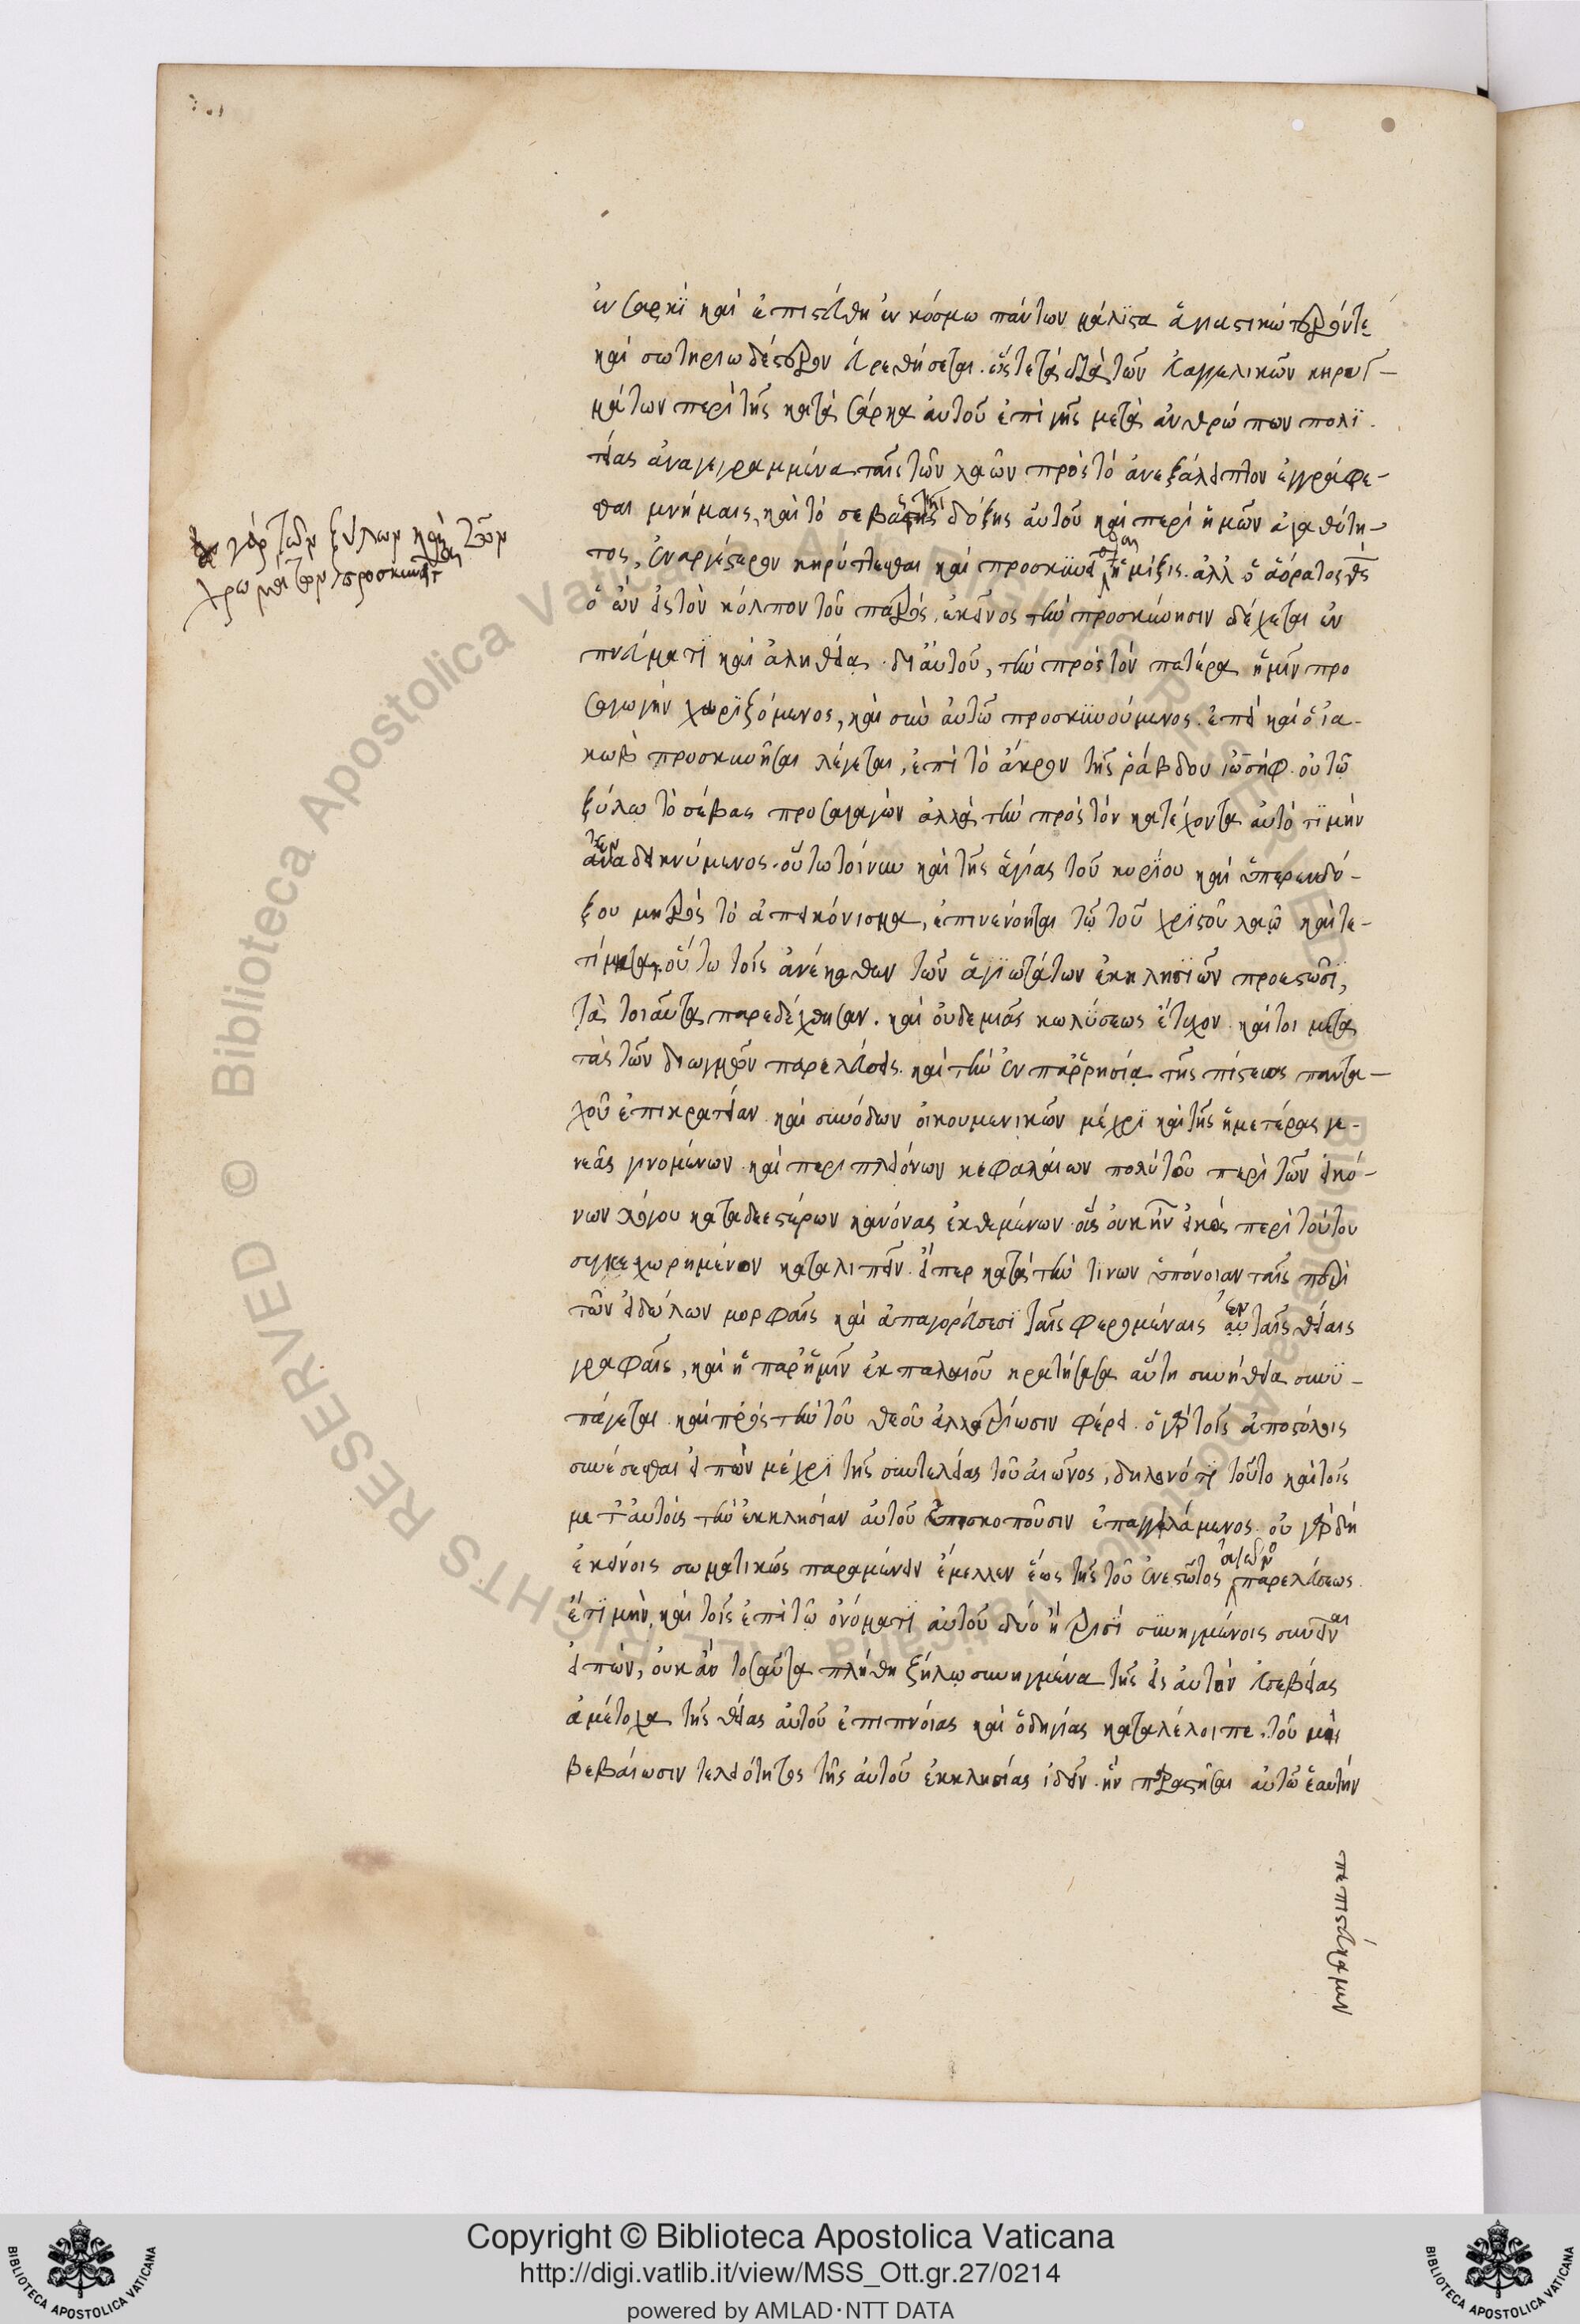 ἐν σαρκὶ καὶ ἐπιστεύθη ἐν κόσμω πάντων μάλιστα ἁγιαστικώτερόν τε
καὶ σωτηριωδέστερον εὑρεθήσεται. ὥστε τὰ διὰ τῶν εὐαγγελικῶν κηρυγ-
μάτων περὶ τῆς κατὰ σάρκα αὐτοῦ ἐπὶ γῆς μετὰ ἀνθρώπων πολι
τείας ἀναγεγραμμένα ταῖς τῶν λαῶν πρὸς τὸ ἀνεξάλειπτον ἐγγράφε-
σθαι μνήμαις, καὶ τὸ σεβας τῆς δόξης αὐτοῦ καὶ περὶ ἡμῶν ἀγαθότη-
τος, ἐναργέστερον κηρύττεσθαι καὶ προσκυνεῖσθαι ἡ μίξις. ἀλλ ὁ ἀόρατος θς
ὁ ὢν εἰς τὸν κόλπον τοῦ πατρός, ἐκεῖνος τὴν προσκύνησιν δέχεται ἐν
πνεύματι καὶ ἀληθεία. δι αὐτοῦ, τὴν πρὸς τὸν πατέρα ἡμῖν προ
σαγωγὴν χωριζόμενος, καὶ σὺν αὐτῶ προσκυνούμενος. ἐπεὶ καὶ ὁ ἰα-
κὼβ προσκυνῆσαι λέγεται, ἐπὶ τὸ ἄκρον τῆς ῥάβδου ἰωσήφ. οὐ τῶ
ξύλω τὸ σέβας προσαγαγὼν ἀλλὰ τὴν πρὸς τὸν κατέχοντα αὐτὸ τιμὴν
ἐνδεικνύμενος. οὕτω τοίνυν καὶ τῆς ἁγίας τοῦ κυρίου καὶ ὑπερενδό-
ξου μητρὸς τὸ ἀπεικόνισμα, ἐπινενόηται τῶ τοῦ χριστοῦ λαῶ καὶ τε-
τίμηται. οὕτω τοῖς ἀνέκαθεν τῶν ἁγιωτάτων ἐκκλησιῶν προεστῶσι,
τὰ τοιαῦτα παρεδέχθησαν. καὶ οὐδεμιᾶς κωλύσεως ἔτυχον. καίτοι μετὰ
τὰς τῶν διωγμῶν παρελεύσεις. καὶ τὴν ἐν παῤῥησία τῆς πίστεως παντα-
χοῦ ἐπικρατείαν. καὶ συνόδων οἰκουμενικῶν μέχρι καὶ τῆς ἡμετέρας γε-
νεᾶς γινομένων. καὶ περὶ πλειόνων κεφαλαίων πολὺ τοῦ περὶ τῶν εἰκό-
νων λόγου καταδεεστέρων κανόνας ἐκθεμένων. οἷς οὐκ ἦν εἰκὸς περὶ τούτου
συγκεχωρημένον καταλιπεῖν. εἴπερ κατὰ τήν τινων ὑπόνοιαν ταῖς περὶ
τῶν εἰδώλων μορφαῖς καὶ ἀπαγορεύσεσι ταῖς φερομέναις ἐν ταῖς θείαις
γραφαῖς, καὶ ἡ παρ ἡμῖν ἐκ παλαιοῦ κρατήσασα αὕτη συνήθεια συνυ-
πάγεται. καὶ πρὸς τὴν τοῦ θεοῦ ἀλλοτρίωσιν φέρει. ὁ γὰρ τοῖς ἀποστόλοις
συνέσεσθαι εἰπὼν μέχρι τῆς συντελείας τοῦ αἰῶνος, δηλονότι τοῦτο καὶ τοῖς
μετ αὐτοὺς τὴν ἐκκλησίαν αὐτοῦ ἐπισκοποῦσιν ἐπαγγειλάμενος. οὐ γὰρ δὴ
ἐκείνοις σωματικῶς παραμένειν ἔμελλεν ἕως τῆς τοῦ ἐνεστῶτος αἰῶνος παρελεύσεως.
ἔτι μὴν, καὶ τοῖς ἐπὶ τῶ ὀνόματι αὐτοῦ δύο ἢ τρισὶ συνηγμένοις συνεῖναι
εἰπὼν, οὐκ ἂν τοσαῦτα πλήθη ζήλω συνηγμένα τῆς εἰς αὐτὸν εὐσεβείας
ἀμέτοχα τῆς θείας αὐτοῦ ἐπιπνοίας καὶ ὁδηγίας καταλέλοιπε. τοῦ μὴ
βεβαίωσιν τελειότητος τῆς αὐτοῦ ἐκκλησίας ἰδεῖν. ἣν παραστῆσαι αὐτῶ ἑαυτὴν
πεπιστεύκαμεν
γὰρ τῶν ξύλων καὶ τῶν
χρωμάτων προσκυνεῖται
Copyright © Biblioteca Apostolica Vaticana
http://digi.vatlib.it/view/MSS_Ott.gr.27/0214
powered by AMLAD·NTT DATA
BIBLIOTECA APOSTOLICA VATICANA
BIBLIOTECA APOSTOLICA VATICANA